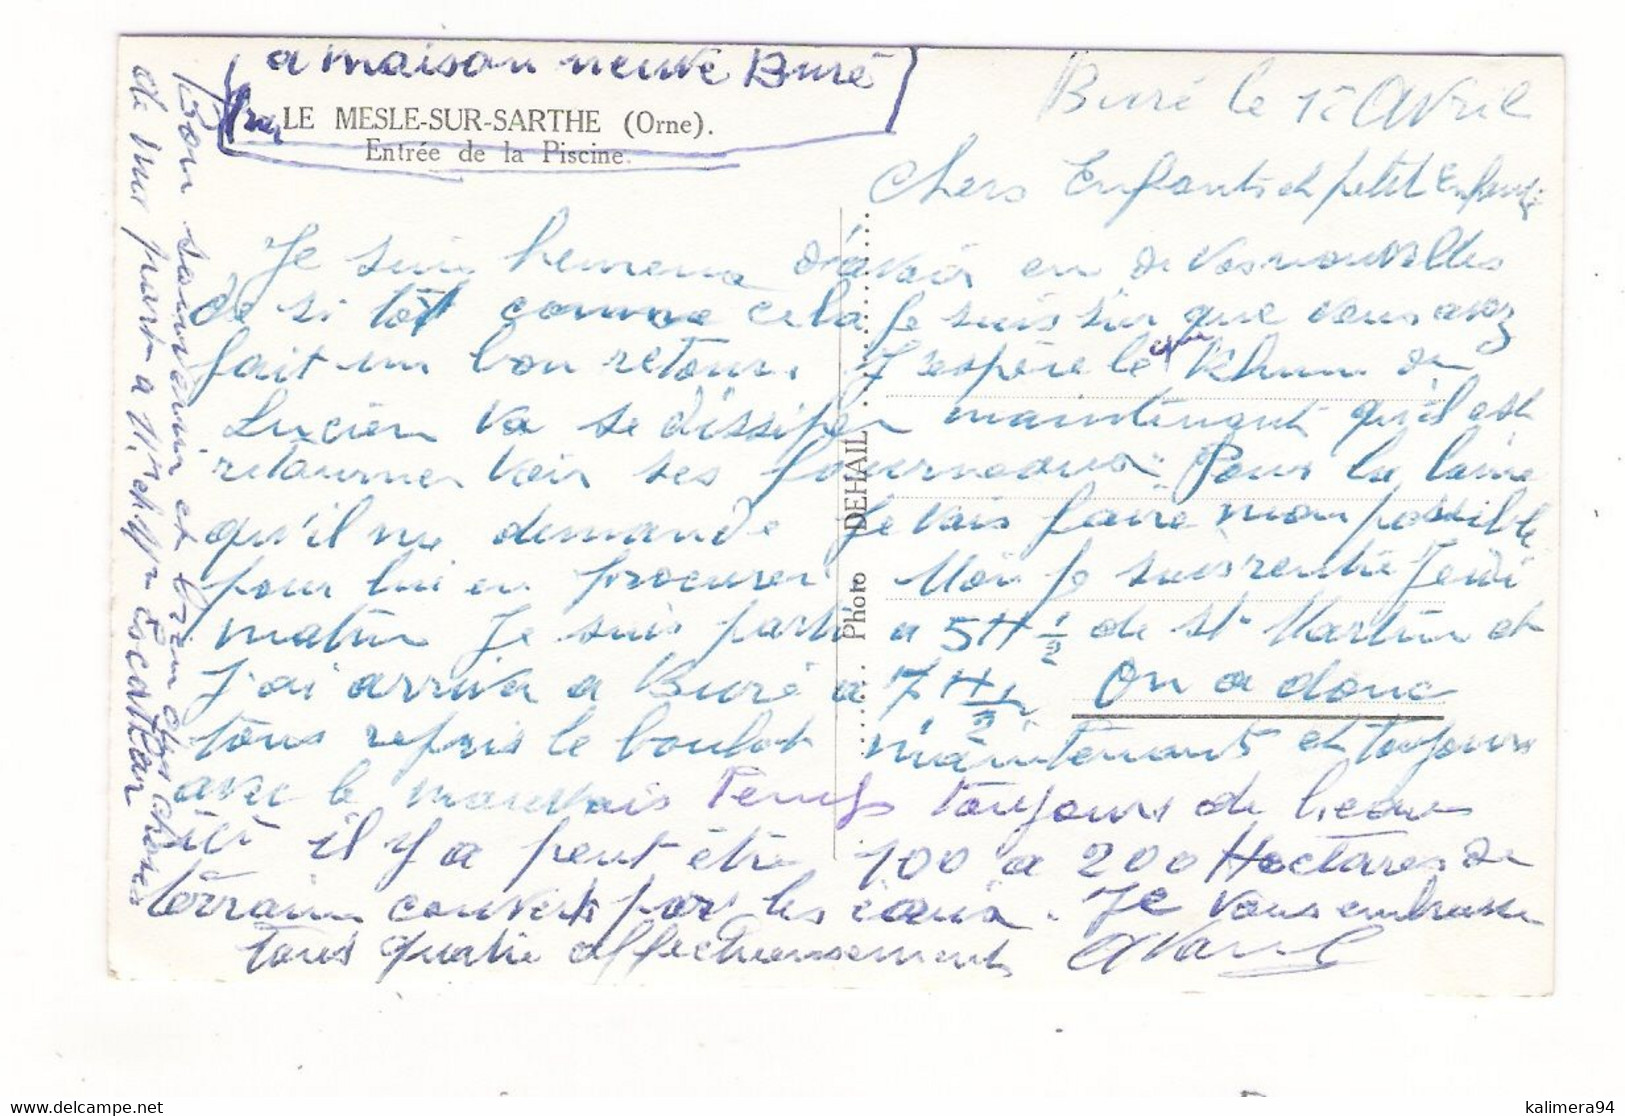 a maison neuve Buré
LE MESLE-SUR-SARTHE (Orne).
Entrée de la Piscine.
Buré le 12 Avril
Chers Enfants et petit Enfants
Je suis heureux d'avoir eu de vos nouvelles
de si tôt comme cela Je suis sur que vous avez
fait un bon retour. J'espère que le Rhume de
Lucien va se dissiper maintenant qu'il est
retourner voir ses fourneaux. Pour la laine
qu'il me demande Je vais faire mon possible
pour lui en procurer. Moi je suis rentré Jeudi
matin Je suis parti a 5H 1/2 de St Martin et
J'ai arriva a Buré a 7 H 1/2 On a donc
tous repris le boulot maintenant et toujours
avec le mauvais Temps toujours de l'eau
ici il y a peut être 100 a 200 Hectares de
terrain couverts par les eaux. Je vous embrasse
tous quatre affectueusement
Bon souvenir et bien des choses
de ma part a
Photo DEHAIL
kalimera94